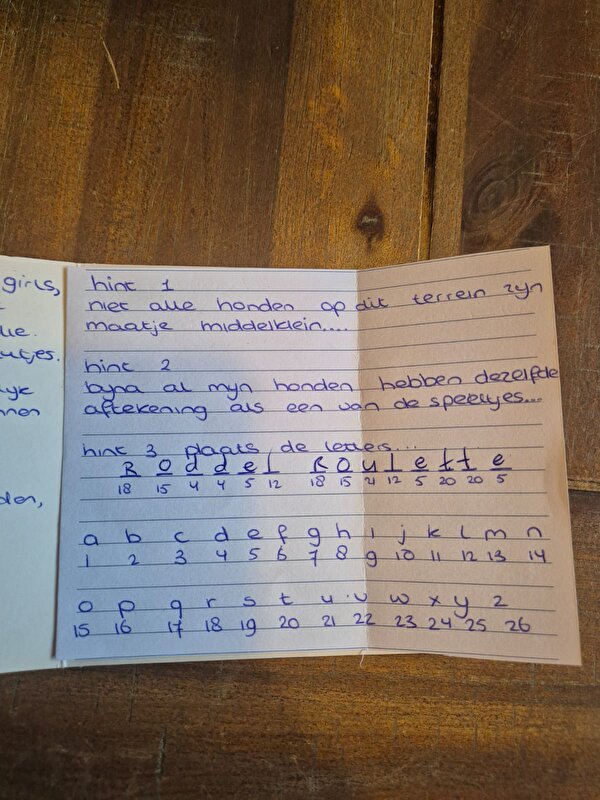 girls,
hint 1
niet alle honden op dit terrein zyn
maatje middelklein....
hint 2
byna al myn honden hebben dezelfde
aftekening als een van de speeltjes...
hint 3 plaats de letters...
R o d d e l R o u l e t t e
18 15 4 4 5 12 18 15 21 12 5 20 20 5
den,
a b c d e f g h i j k l m n
1 2 3 4 5 6 7 8 9 10 11 12 13 14
o p q r s t u v w x y z
15 16 17 18 19 20 21 22 23 24 25 26